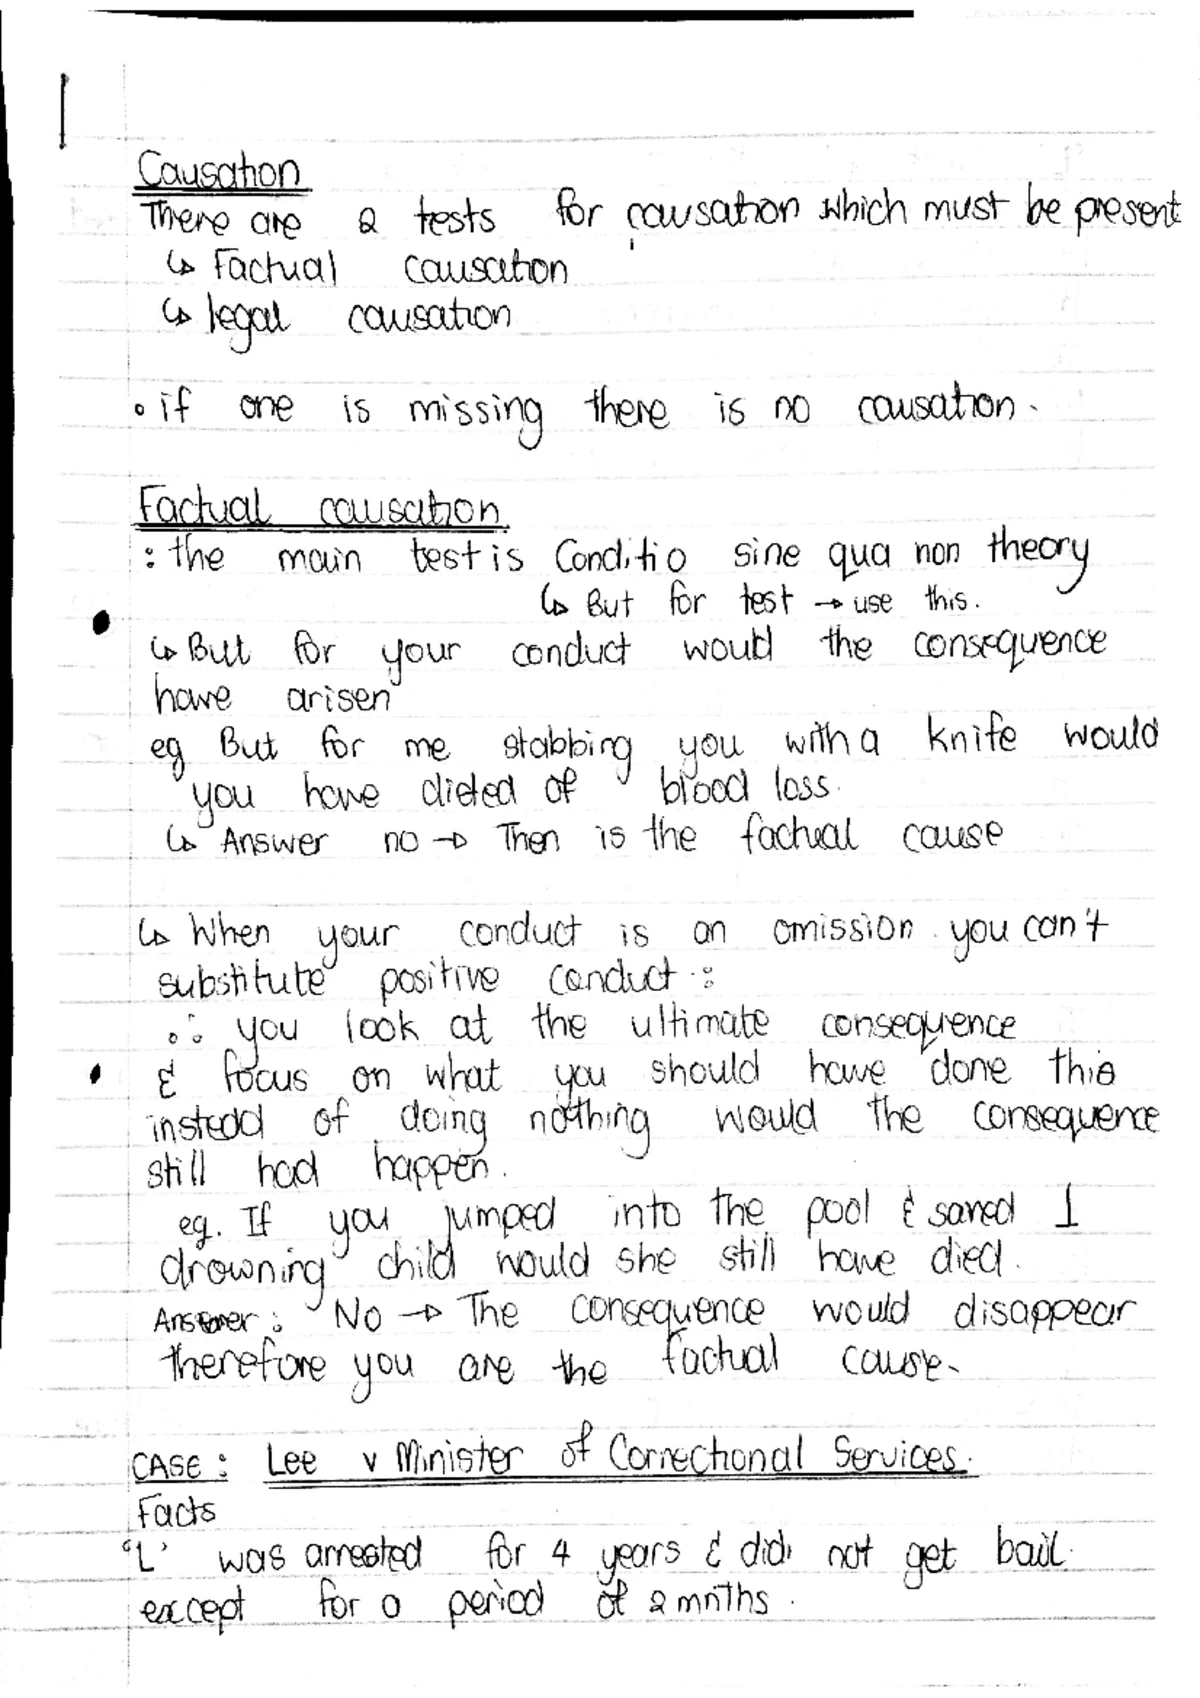 Causation
There are 2 tests for causation which must be present
↳ Factual causation
↳ legal causation
• if one is missing there is no causation.
Factual causation
: the main test is Conditio sine qua non theory
↳ But for test → use this.
↳ But for your conduct would the consequence
have arisen
eg But for me stabbing you with a knife would
you have dieted of blood loss.
↳ Answer no → Then is the factual cause
↳ When your conduct is an omission you can't
substitute positive conduct :
∴ you look at the ultimate consequence
& focus on what you should have done this
instead of doing nothing would the consequence
still had happen.
eg. If you jumped into the pool & saved 1
drowning child would she still have died.
Answer : No → The consequence would disappear
therefore you are the factual cause.
CASE : Lee v Minister of Correctional Services.
Facts
'L' was arrested for 4 years & did not get bail
except for a period of 2 mnths.